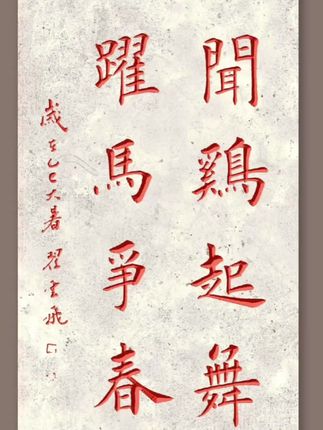 聞鷄起舞
躍馬爭春
歲在乙巳大春 翟雲飛